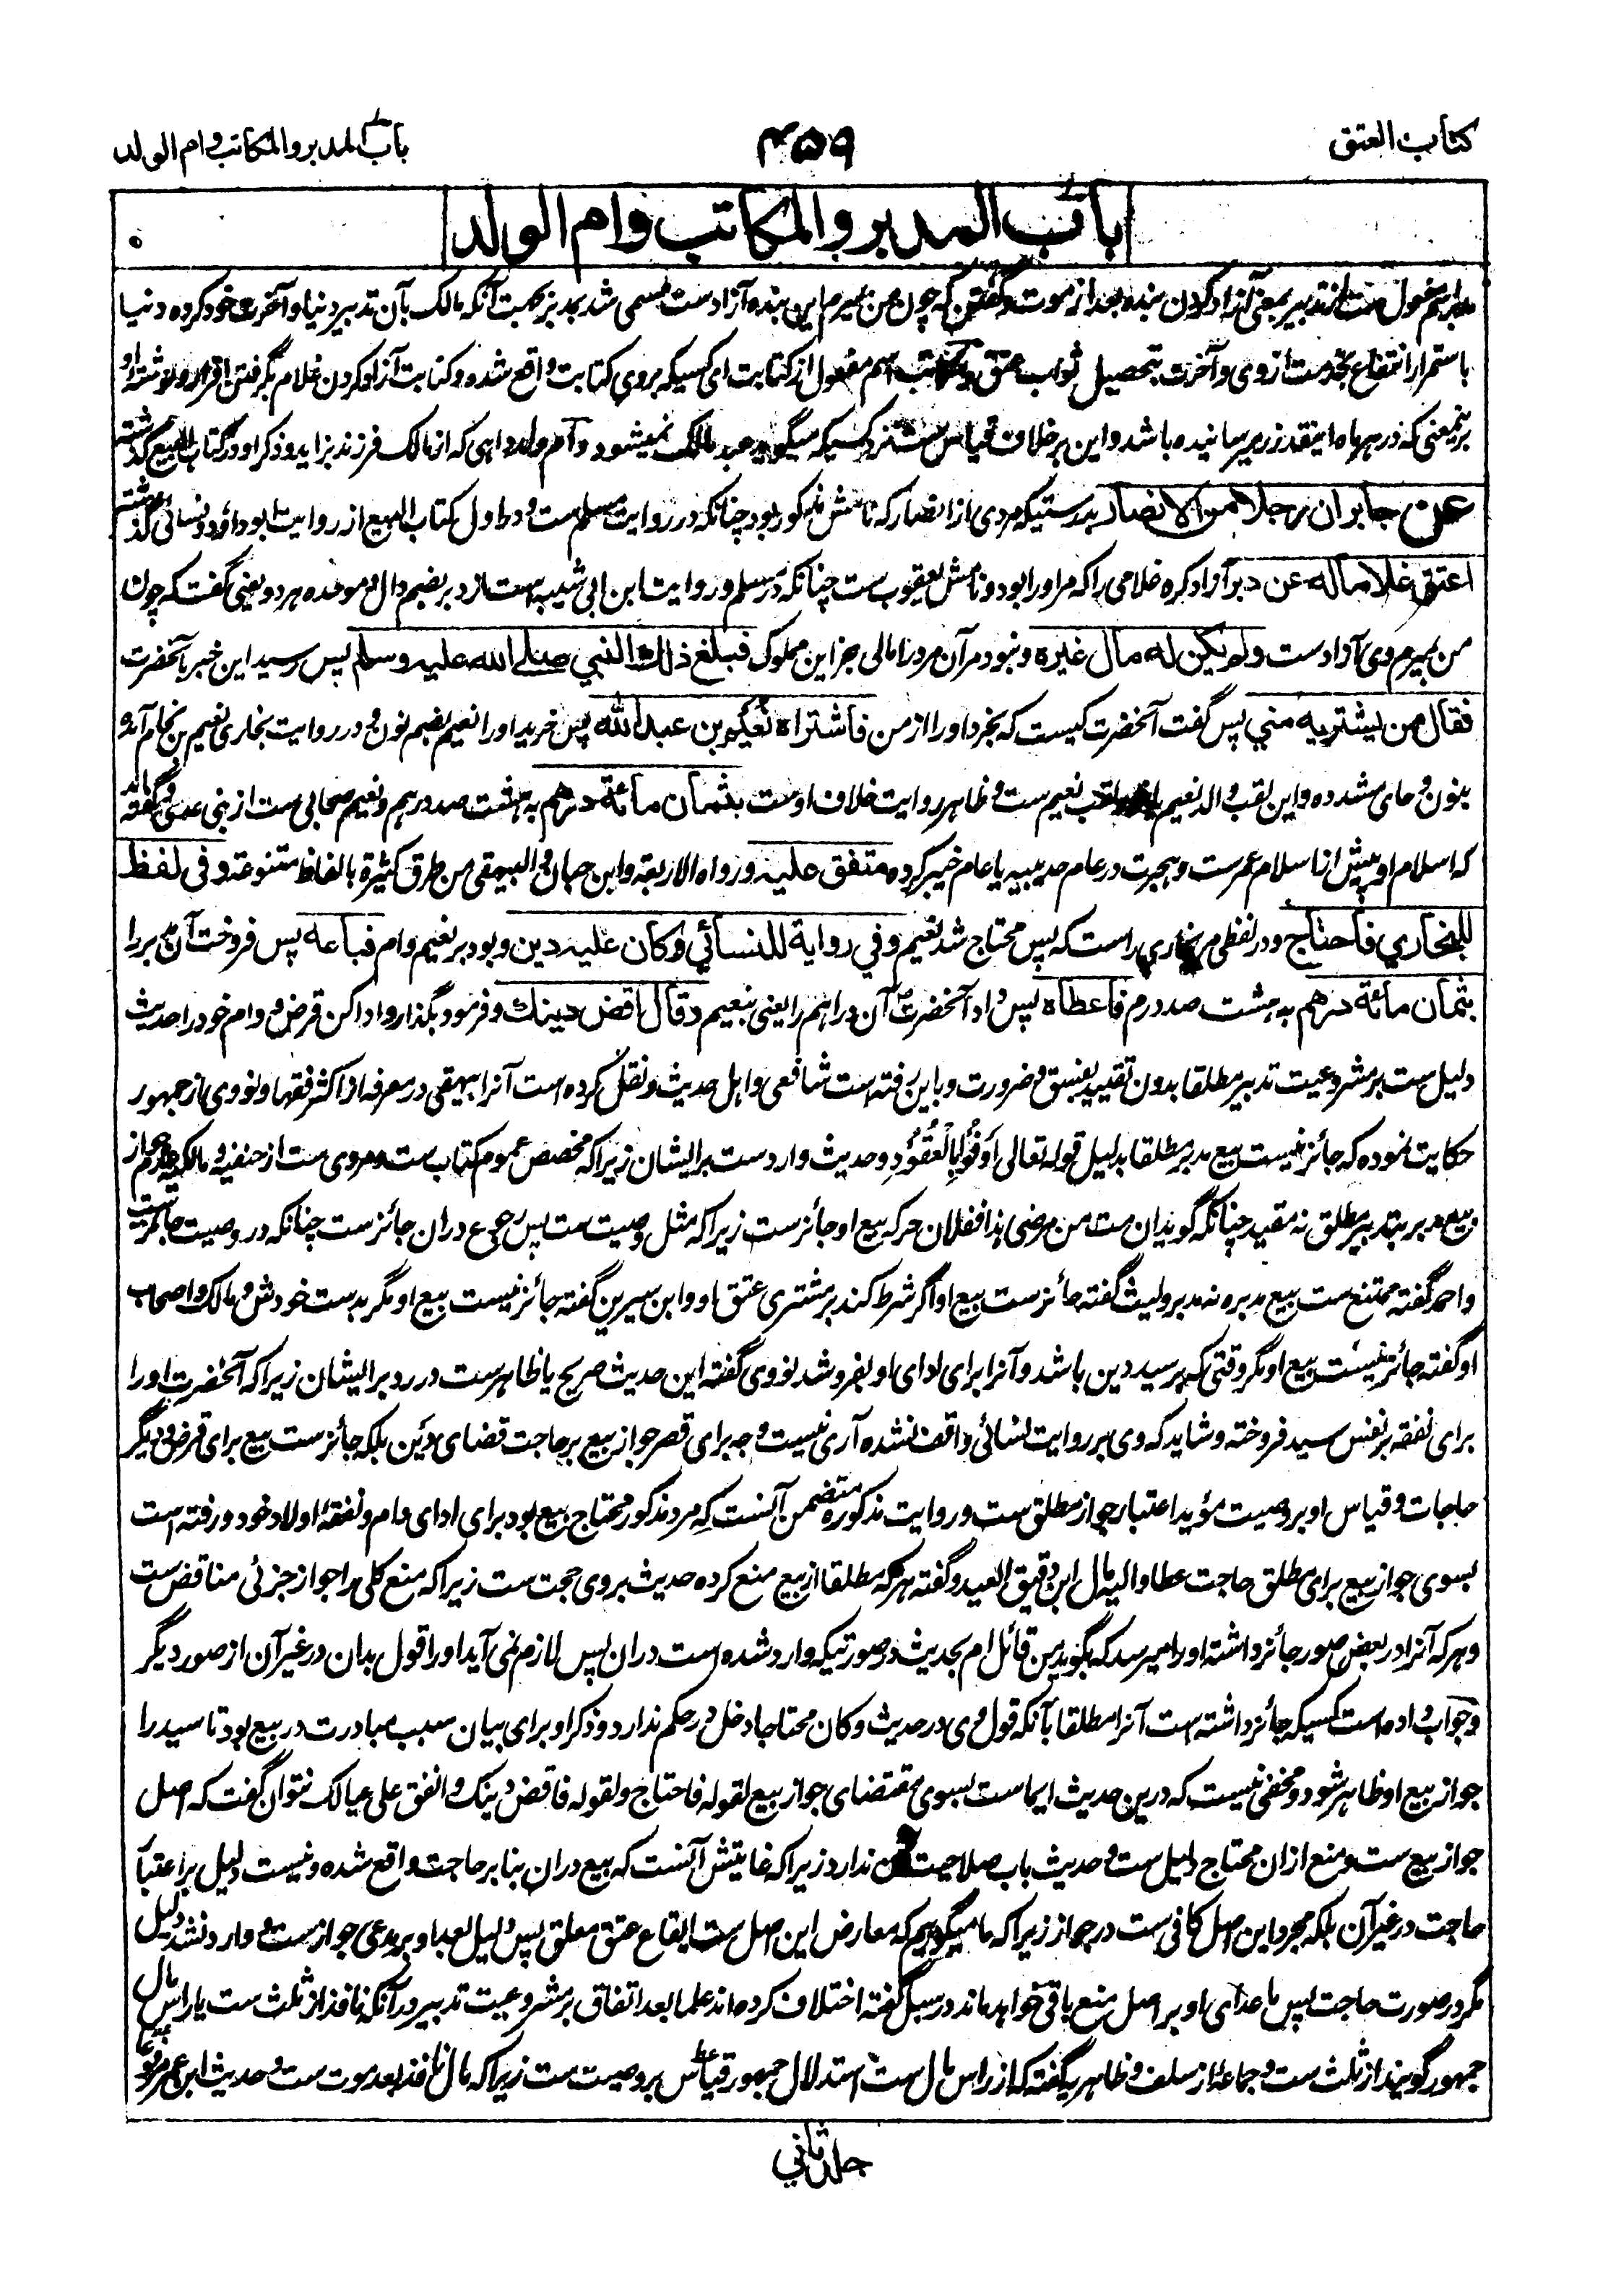 کتاب العتق
۴۵۹
باب المدبر والمکاتب وام الولد
باب المدبر والمکاتب وام الولد
مدبر اسم مفعول ست از تدبیر بمعنی آزاد کردن بنده بعد از موت و گفتن که چون من بمیرم این بنده آزادست مسمی شد بمدبر بجهت آنکه مالک بآن تدبیر دنیا و آخرت خود کرده دنیا
باستمرار انتفاع بخدمت از وی و آخرت بتحصیل ثواب عتق و مکاتب اسم مفعول از کتابت ای کسیکه بروی کتابت واقع شده و کتابت آزاد کردن غلام بگرفتن اقرار و نوشته او
برینمعنی که در هر ماه اینقدر زر میرسانیده باشد و این بر خلاف قیاس ست نزد کسیکه میگوید عبد مالک نمیشود و ام ولد داهی که از مالک فرزند بزاید و ذکر او در کتاب البیع گذشته
عن جابر ان رجلا من الانصار بدرستیکه مردی از انصار که نامش مذکور بود چنانکه در روایت مسلم ست و در اول کتاب البیع از روایت ابو داؤد و نسائی گذشته
اعتق غلاما له عن دبر آزاد کرد غلامی را که مر او را بود و نامش یعقوب ست چنانکه در مسلم و روایت ابن ابی شیبه ست از دبر بضم دال و موحده هر دو یعنی گفت که چون
من بمیرم وی آزادست ولم یکن له مال غیره و نبود مر آن مرد را مالی جز این مملوک فبلغ ذلك النبي صلے الله علیه وسلم پس رسید این خبر بآنحضرت
فقال من یشتریه مني پس گفت آنحضرت کیست که بخرد او را از من فاشتراه نعیم بن عبدالله پس خرید او را نعیم بضم نون و در روایت بخاری نعیم بن نحام آمده
بنون و حای مشدده و این لقب والد نعیم لقب نعیم ست و ظاهر روایت خلاف اوست بثمان مائة درهم به هشت صد درهم و نعیم صحابی ست از بنی عدی گفته اند
که اسلام او پیش از اسلام عمرست و هجرت در عام حدیبیه یا عام خیبر کرده متفق علیه ورواه الاربعة وابن حبان والبیهقی من طرق کثیرة بالفاظ متنوعة وفی لفظ
للبخاري فاحتاج و در لفظی مر بخاری راست که پس محتاج شد نعیم وفي رواية للنسائي وکان علیه دین و بود بر نعیم وام فباعه پس فروخت آن مدبر را
بثمان مائة درهم به هشت صد درم فاعطاه پس داد آنحضرت آن دراهم را یعنی بنعیم وقال اقض دینك و فرمود بگذار و ادا کن قرض و وام خود را حدیث
دلیل ست بر مشروعیت تدبیر مطلقا بدون تقیید بفسق و ضرورت و باین رفته است شافعی و اهل حدیث و نقل کرده است آنرا بیهقی در معرفه از اکثر فقها و نووی از جمهور
حکایت نموده که جائز نیست بیع مدبر مطلقا بدلیل قوله تعالی اَوفُوا بِالْعُقُودِ و حدیث واردست بر ایشان زیرا که مخصص عموم کتاب ست و مروی ست از حنفیه و مالکیه عدم جواز
بیع مدبر بتدبیر مطلق نه مقید چنانکه گوید ان مت من مرضی هذا ففلان حر که بیع او جائزست زیرا که مثل وصیت ست پس رجوع دران جائزست چنانکه در وصیت جائزست
و احمد گفته ممتنع ست بیع مدبره نه مدبر و لیث گفته جائزست بیع او اگر شرط کند بر مشتری عتق او و ابن سیرین گفته جائز نیست بیع او مگر بدست خودش و مالک و اصحاب
او گفته جائز نیست بیع او مگر وقتی که بر سید دین باشد و آنرا برای ادای او بفروشد نووی گفته این حدیث صریح یا ظاهرست در رد بر ایشان زیرا که آنحضرت او را
برای نفقه بر نفس سید فروخته و شاید که وی بر روایت نسائی واقف نشده آری نیست وجه برای قصر جواز بیع بر حاجت قضای دین بلکه جائزست بیع برای قرض و دیگر
حاجات و قیاس او بر وصیت مؤید اعتبار جواز مطلق ست و روایت مذکوره متضمن آنست که مرد مذکور محتاج بیع بود برای ادای وام و نفقه اولاد خود و رفته است
بسوی جواز بیع برای مطلق حاجت عطا والیه مال ابن دقیق العید و گفته هرکه مطلقا از بیع منع کرده حدیث بروی حجت ست زیرا که منع کلی را جواز جزئی مناقض ست
و هرکه آنرا در بعض صور جائز داشته او را میرسد که بگوید من قائل ام بحدیث در صورتیکه وارد شده است دران پس لازم نمی آید او را قول بدان در غیر آن از صور دیگر
و جواب داده است کسیکه جائز داشته است آنرا مطلقا بآنکه قول وی در حدیث و کان محتاجا دخل در حکم ندارد و ذکر او برای بیان سبب مبادرت در بیع بود تا سید را
جواز بیع او ظاهر شود و مخفی نیست که درین حدیث ایماست بسوی مقتضای جواز بیع لقوله فاحتاج و لقوله فاقض دینک و انفق علی عیالک نتوان گفت که اصل
جواز بیع ست و منع ازان محتاج دلیل ست و حدیث باب صلاحیت ندارد زیرا که غایتش آنست که بیع دران بنا بر حاجت واقع شده و نیست دلیل بر اعتبار
حاجت در غیر آن بلکه مجرد این اصل کافی ست در جواز زیرا که ما میگوییم که معارض این اصل ست ایقاع عتق معلق پس دلیل بعد او بر مدعی جوازست و وارد نشد دلیل
مگر در صورت حاجت پس ما عدای او بر اصل منع باقی خواهد ماند در سبل گفته اختلاف کرده اند علما بعد اتفاق بر مشروعیت تدبیر در آنکه نافذ از ثلث ست یا راس مال
جمهور گویند از ثلث ست و جماعه از سلف و ظاهریه گفته که از راس مال ست استدلال جمهور قیاس بر وصیت ست زیرا که مال نافذ بعد موت ست و حدیث ابن عمر مرفوعا
جلد ثاني